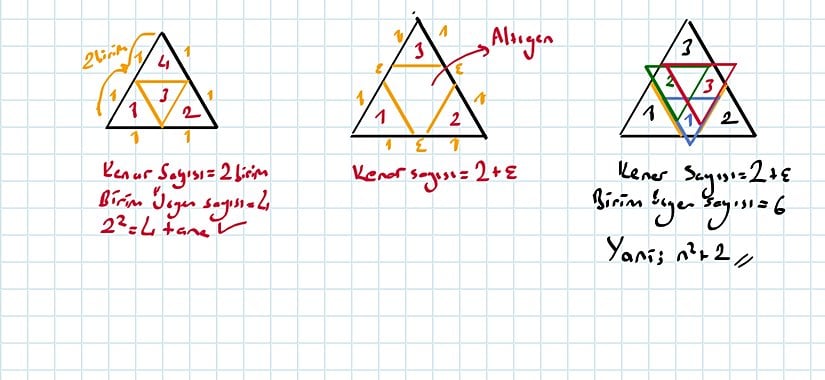 2 birim
1
1
4
1
1
1
3
2
1
1
Kenar Sayısı = 2 birim
Birim Üçgen sayısı = 4
2² = 4 tane ✓
1
1
3
Altıgen
ε
ε
1
1
1
2
1
ε
1
Kenar sayısı = 2 + ε
3
2
3
1
1
2
Kenar Sayısı = 2 + ε
Birim üçgen sayısı = 6
Yani; n² + 2 //